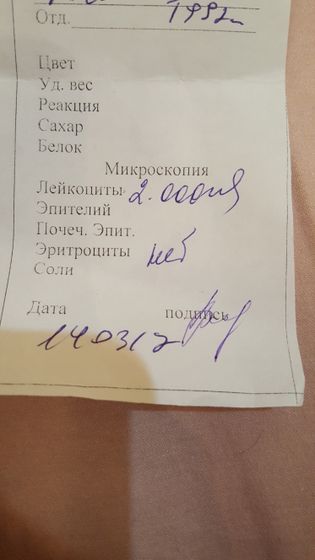 Отд. 1992г
Цвет
Уд. вес
Реакция
Сахар
Белок
Микроскопия
Лейкоциты 2.000
Эпителий
Почеч. Эпит.
Эритроциты нет
Соли
Дата подпись
140312